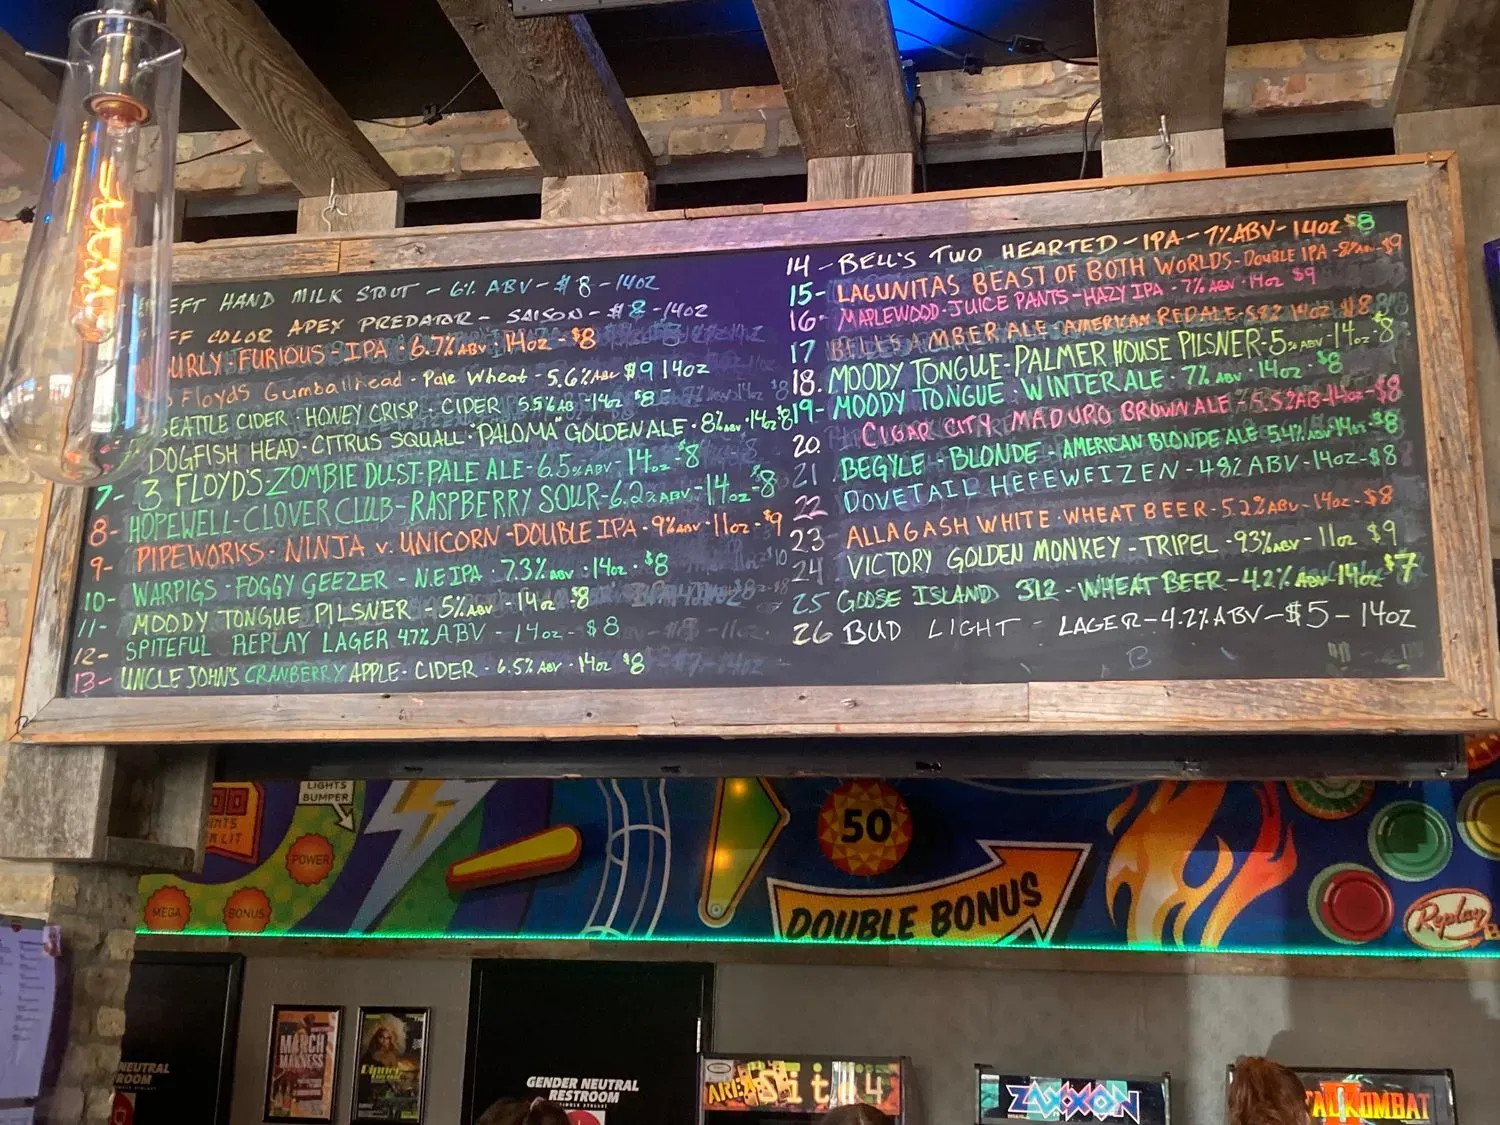 EFT HAND MILK STOUT - 6% ABV - $8 - 14OZ
FF COLOR APEX PREDATOR - SAISON - $8 - 14OZ
URLY · FURIOUS - IPA · 6.7% ABV · 14oz · $8
Floyds Gumballhead - Pale Wheat - 5.6% ABV $9 14oz
SEATTLE CIDER · HONEY CRISP · CIDER 5.5% AB · 14oz $8
DOGFISH HEAD - CITRUS SQUALL · "PALOMA" GOLDEN ALE · 8% ABV · 14oz $8
7- 3 FLOYD'S · ZOMBIE DUST - PALE ALE - 6.5% ABV - 14oz - $8
8- HOPEWELL - CLOVER CLUB - RASPBERRY SOUR - 6.2% ABV - 14oz - $8
9- PIPEWORKS · NINJA v. UNICORN - DOUBLE IPA · 9% ABV · 11oz - $9
10- WARPIGS - FOGGY GEEZER - N.E IPA · 7.3% ABV · 14oz · $8
11- MOODY TONGUE PILSNER - 5% ABV - 14oz - $8
12- SPITEFUL REPLAY LAGER 4.7% ABV - 14oz - $8
13- UNCLE JOHN'S CRANBERRY APPLE · CIDER · 6.5% ABV · 14oz $8
14 - BELL'S TWO HEARTED - IPA - 7% ABV - 14oz $8
15- LAGUNITAS BEAST OF BOTH WORLDS - DOUBLE IPA - 8% ABV - $9
16- MAPLEWOOD - JUICE PANTS - HAZY IPA · 7% ABV · 14oz $9
17 BELL'S AMBER ALE - AMERICAN RED ALE - 5.8% 14oz $8
18. MOODY TONGUE - PALMER HOUSE PILSNER - 5% ABV - 14oz · $8
19- MOODY TONGUE · WINTER ALE · 7% ABV · 14oz · $8
20. CIGAR CITY MADURO BROWN ALE 5.5% AB - 14oz - $8
21 BEGYLE - BLONDE - AMERICAN BLONDE ALE 5.4% ABV 14oz $8
22 DOVETAIL HEFEWEIZEN - 4.8% ABV - 14oz - $8
23 ALLAGASH WHITE · WHEAT BEER - 5.2% ABV - 14oz - $8
24 VICTORY GOLDEN MONKEY - TRIPEL · 9.3% ABV - 11oz $9
25 GOOSE ISLAND 312 - WHEAT BEER - 4.2% ABV - 14oz $7
26 BUD LIGHT - LAGER - 4.2% ABV - $5 - 14OZ
LIGHTS
BUMPER
POWER
MEGA
BONUS
50
DOUBLE BONUS
Replay
MARCH
MADNESS
Dinner
NEUTRAL
ROOM
GENDER NEUTRAL
RESTROOM
AREA
Site 4
ZAXXON
TAL KOMBAT
II